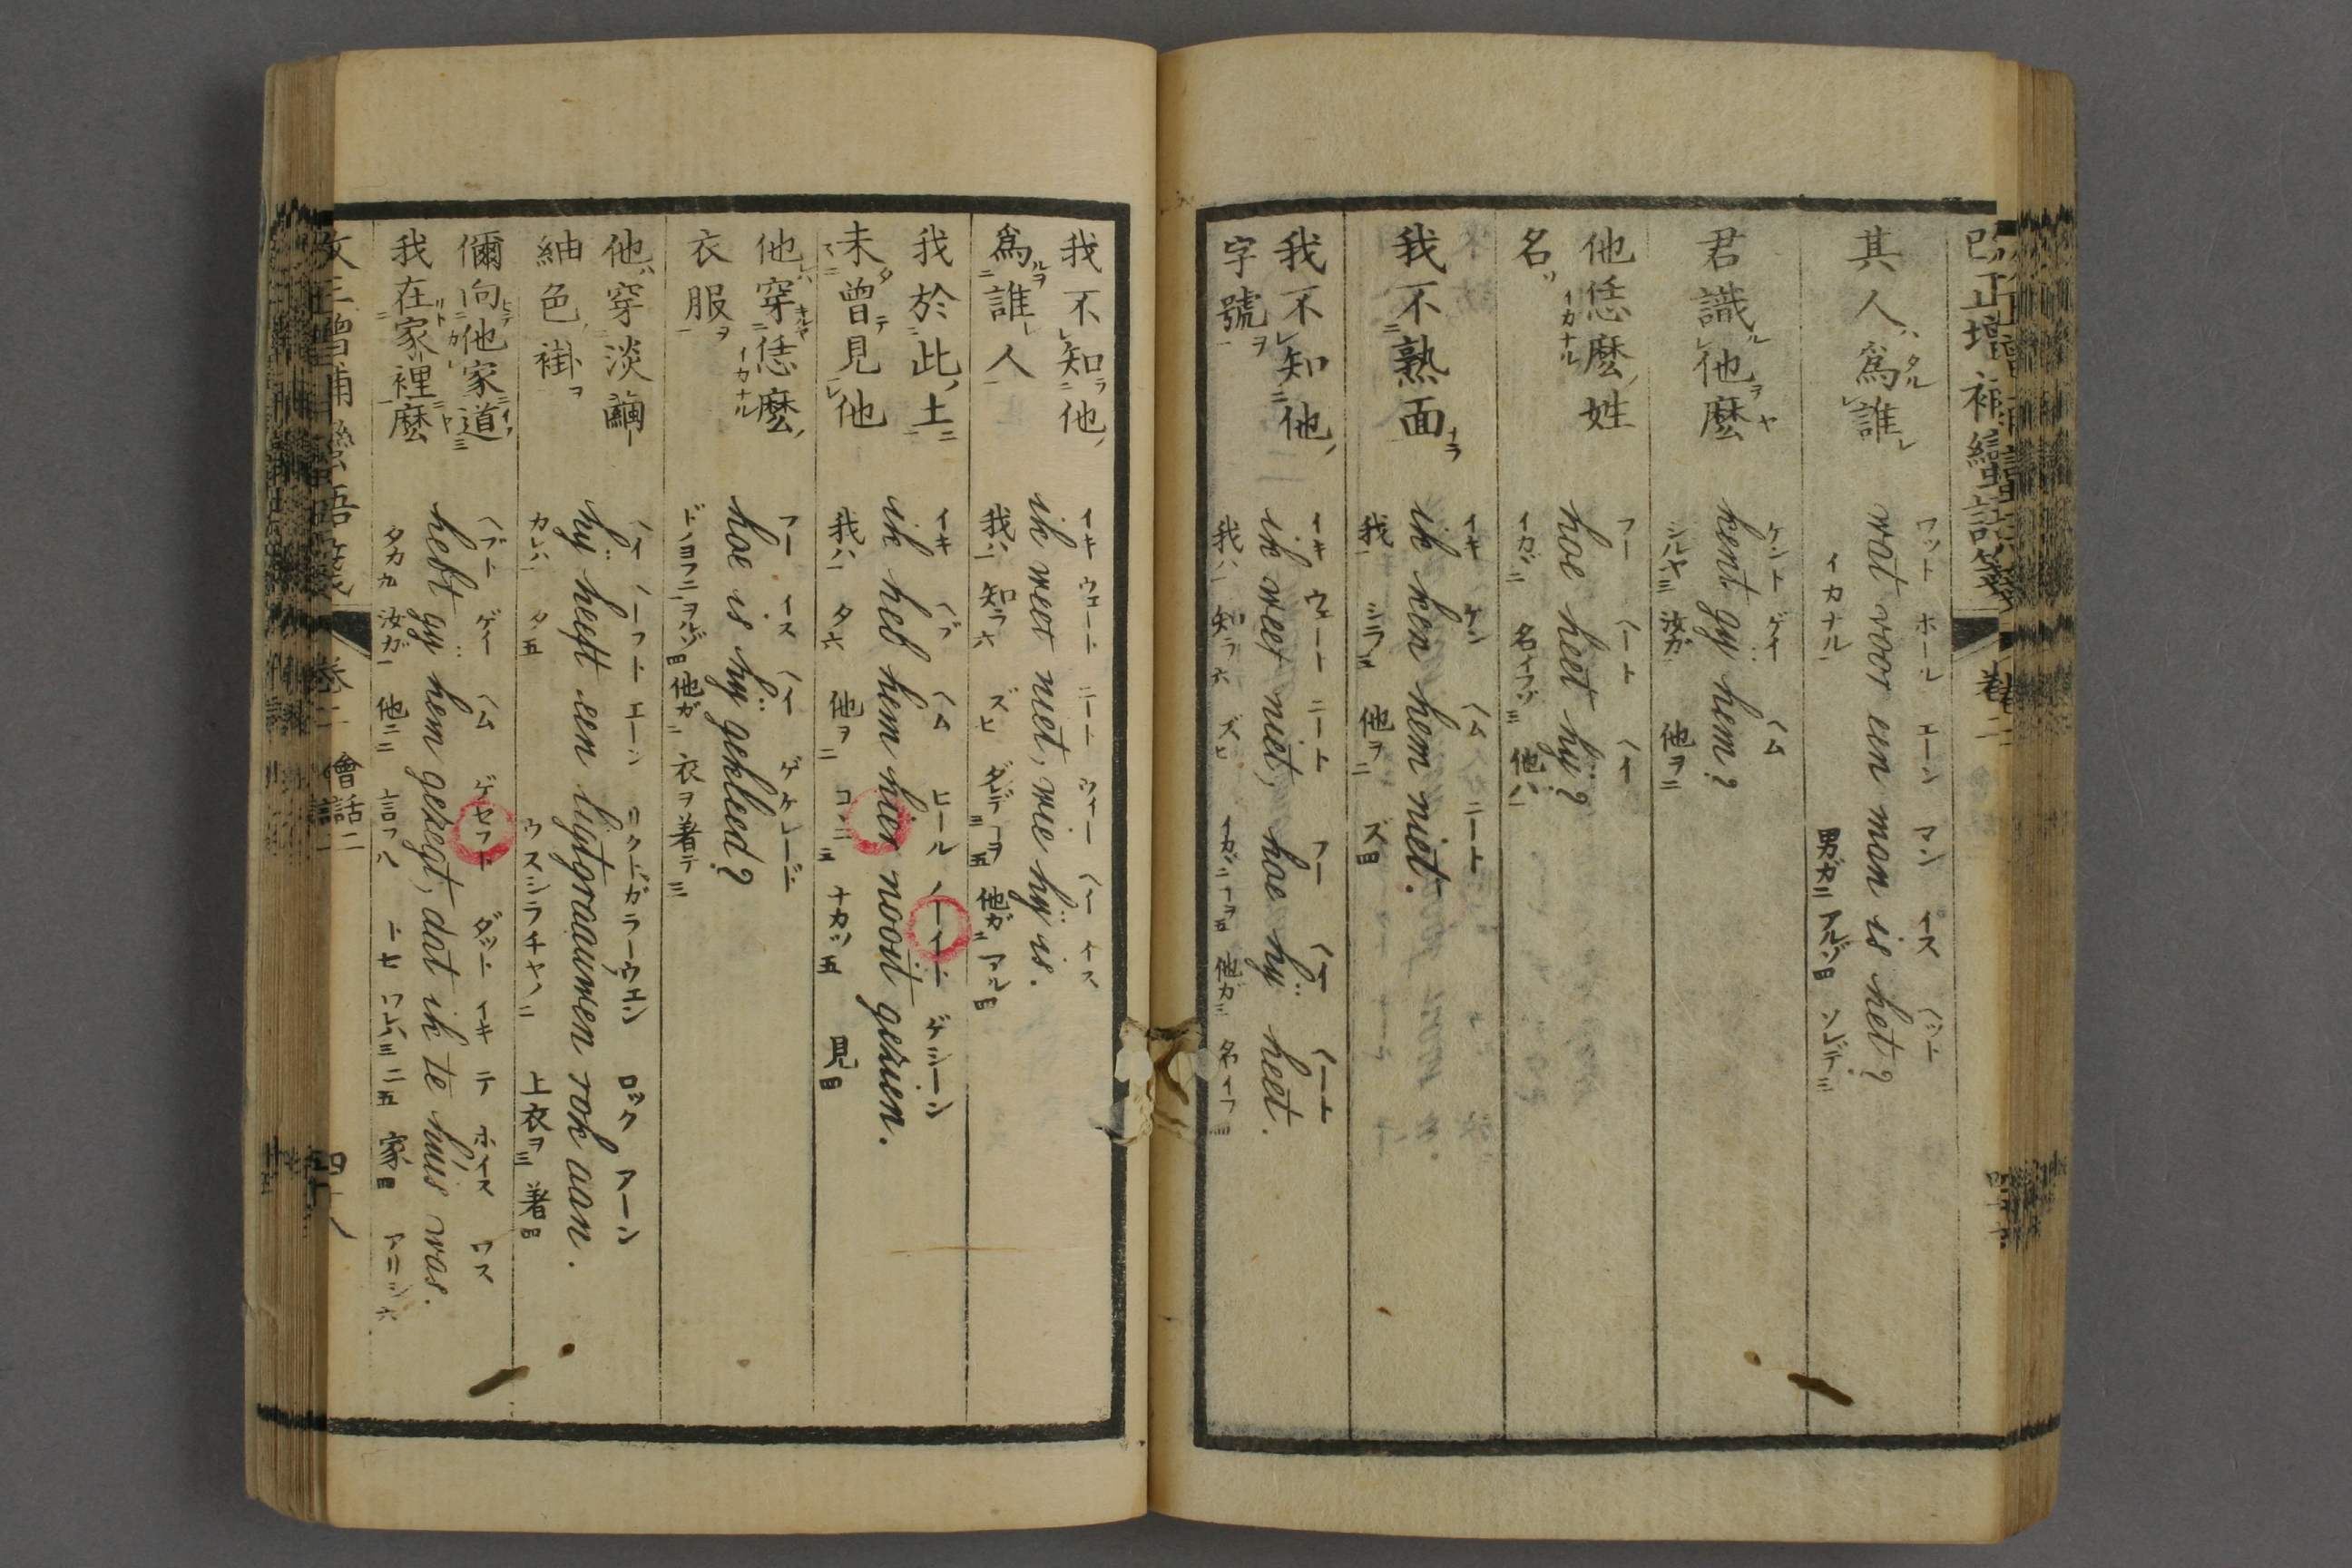 改正増補蠻語箋
卷二
其人爲誰
ワット ホール エーン マン イス ヘット
wat voor een man is het?
イカナル一 男ガニ アルゾ四 ソレデ三
君識他麼
ケント ゲイ ヘム
kent gÿ hem?
シルヤ三 汝ガ一 他ヲ二
他恁麼姓
名
フー ヘート ヘイ
hoe heet hÿ?
イカガ二 名イフゾ三 他ハ一
我不熟面
イキ ケン ヘム ニート
ik ken hem niet.
我一 シラ三 他ヲ二 ズ四
我不知他
字號
イキ ウェート ニート フー ヘイ ヘート
ik weet niet, hoe hÿ heet.
我ハ一 知ラ六 ズヒ 他ガ三 名イフ四
我不知他
爲誰人
イキ ウェート ニート ウィー ヘイ イス
ik weet niet, wie hÿ is.
我ハ一 知ラ六 ズヒ 他ガ二 アル四
我於此土
未曾見他
イキ ヘブ ヘム ヒール ノーイト ゲシーン
ik heb hem hier nooit gezien.
我ハ一 タ六 他ヲ二 コヽニ三 ナカツ五 見四
他穿恁麼
衣服
フー イス ヘイ ゲケレード
hoe is hÿ gekleed?
ドノヨフニヲルゾ四 他ガ一 衣ヲ著テ三
他穿淡繭
紬色褂
ヘイ ヘーフト エーン リクトガラーウェン ロック アーン
hÿ heeft een ligtgraauwen rok aan.
カレハ一 タ五 ウスシラチャノ二 上衣ヲ三 著四
儞向他家道
我在家裡麼
ヘブト ゲイ ヘム ゲセフト ダット イキ テ ホイス ワス
hebt gÿ hem gezegt, dat ik te huis was.
タカ九 汝ガ一 他ニ二 言フ八 ト七 ワレハ三 ニ五 家四 アリシ六
改正增補蠻語箋
卷二
會話二
四十八